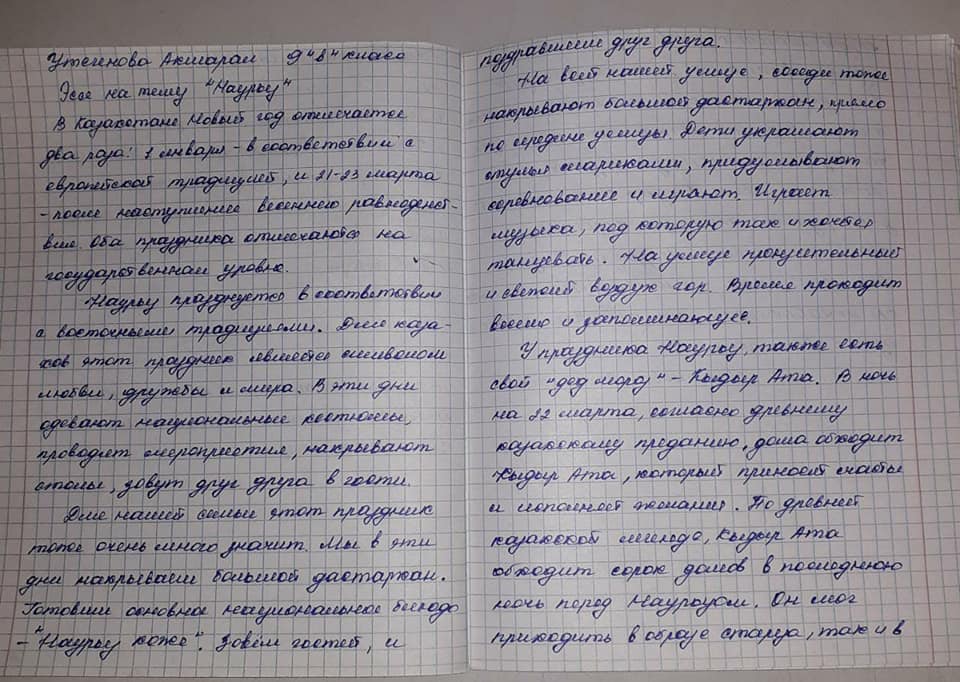 Утегенова Акмарал 9 "в" класс
Эссе на тему "Наурыз"
В Казахстане Новый год отмечается
два раза: 1 января - в соответствии с
европейской традицией, и 21-23 марта
- после наступления весеннего равноденст-
вия. Оба праздника отмечаются на
государственном уровне.
Наурыз празднуется в соответствии
с восточными традициями. Для каза-
хов этот праздник является символом
любви, дружбы и мира. В эти дни
одевают национальные костюмы,
проводят мероприятия, накрывают
столы, зовут друг друга в гости.
Для нашей семьи этот праздник
тоже очень много значит. Мы в эти
дни накрываем большой дастархан.
Готовим основное национальное блюдо
- "Наурыз коже". Зовём гостей, и
поздравляем друг друга.
На всей нашей улице, соседи тоже
накрывают большой дастархан, прямо
по середине улицы. Дети украшают
стулья шариками, придумывают
соревнование и играют. Играет
музыка, под которую так и хочется
танцевать. На улице пронзительный
и свежий воздух гор. Время проходит
весело и запоминающее.
У праздника Наурыз, также есть
свой "дед мороз" - Кыдыр Ата. В ночь
на 22 марта, согласно древнему
казахскому преданию, дома обходит
Кыдыр Ата, который приносит счастье
и исполняет желания. По древней
казахской легенде, Кыдыр Ата
обходит сорок домов в последнюю
ночь перед Наурызом. Он мог
приходить в образе старца, так и в